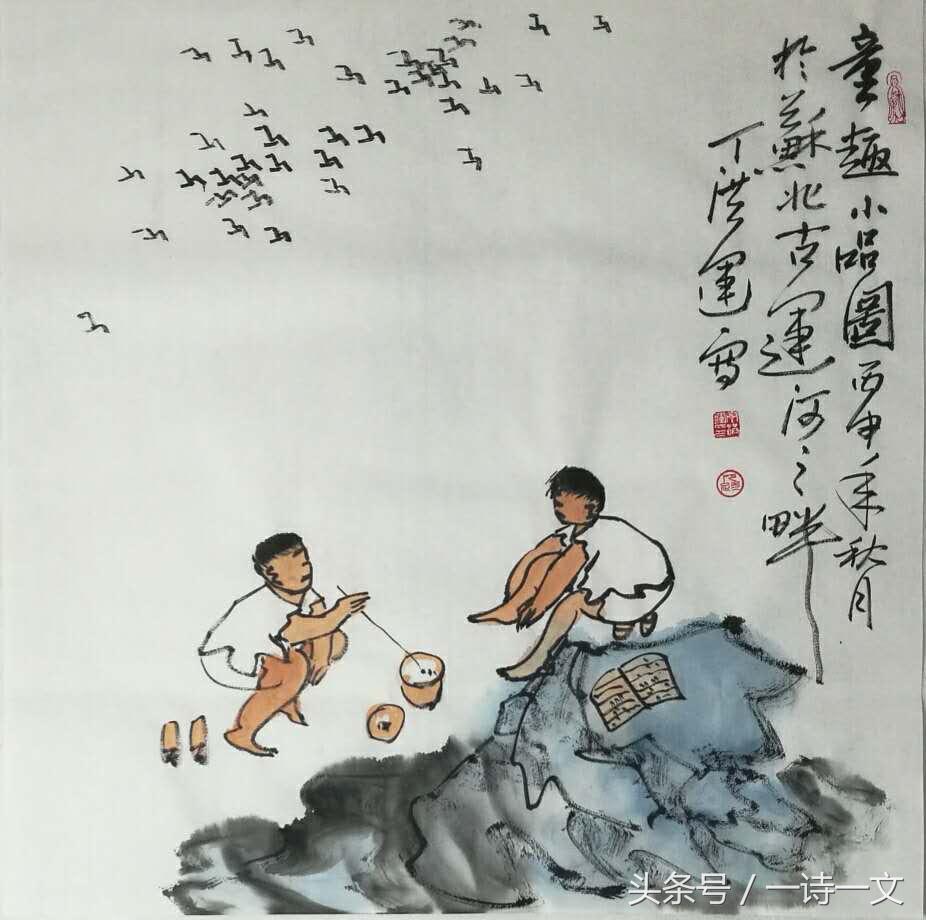 童趣小品圖丙申年秋月
於蘇北古運河之畔
丁洪運寫
头条号 / 一诗一文